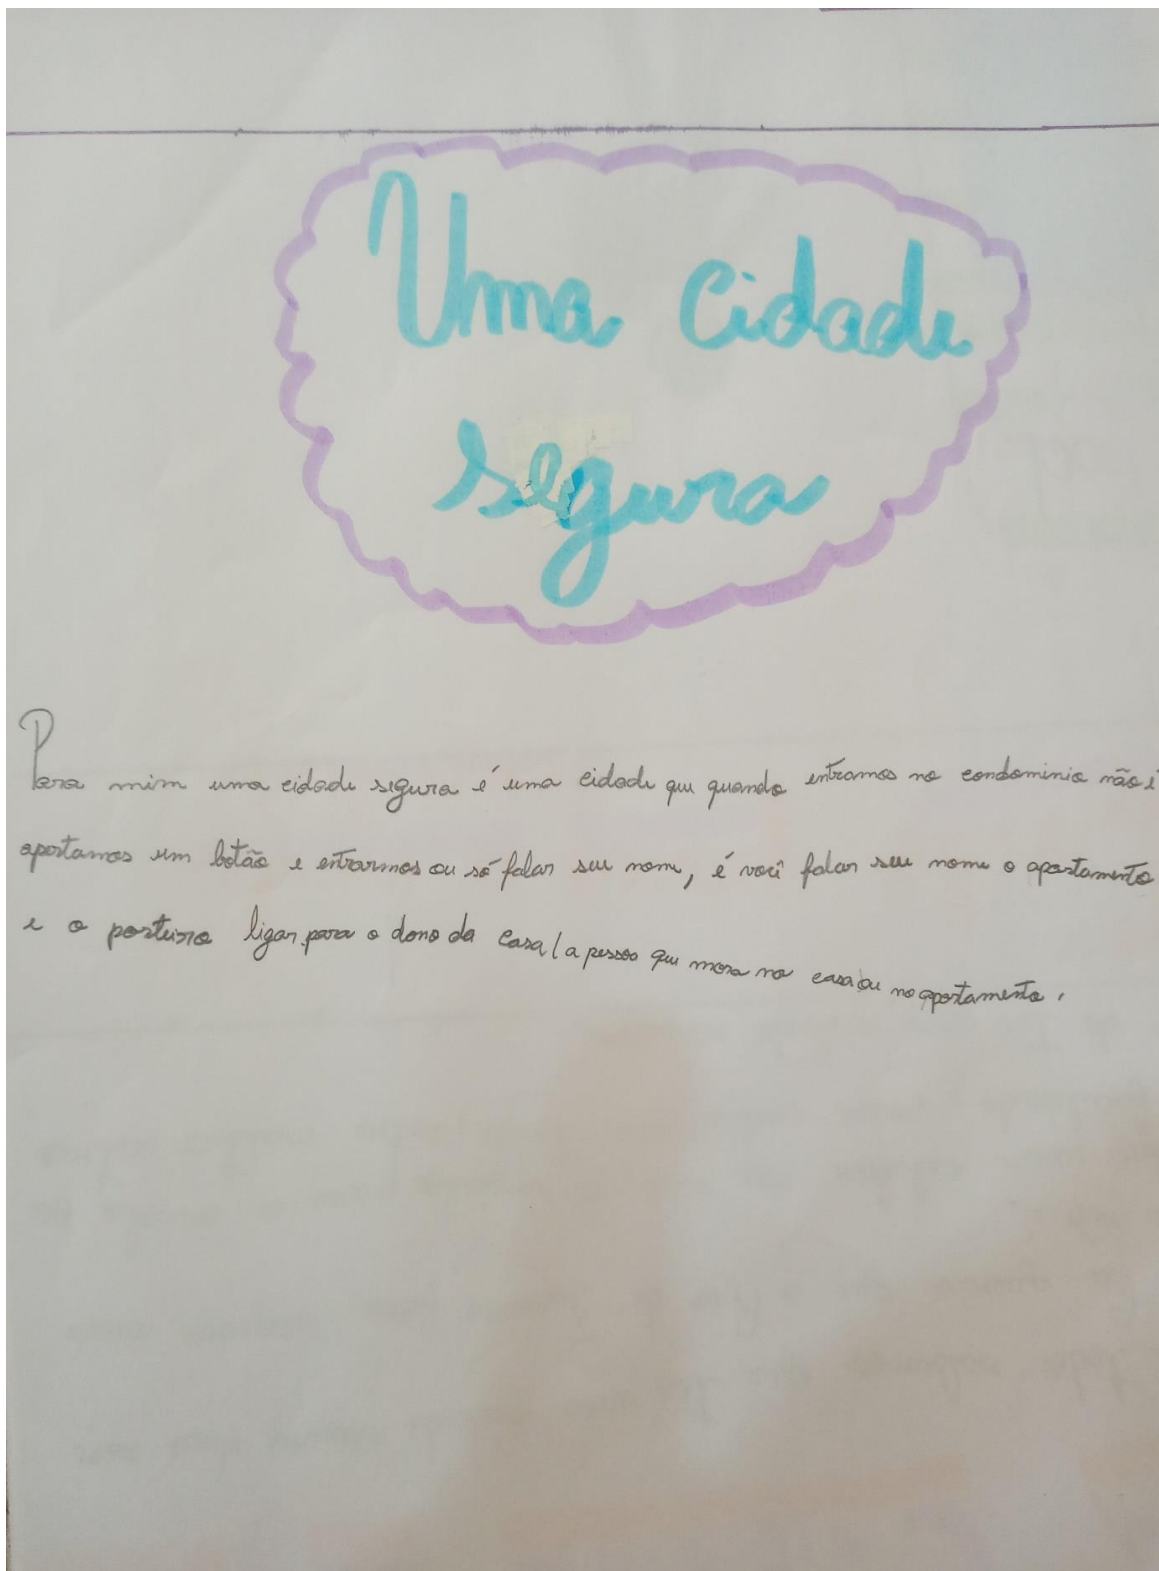 Uma Cidade
segura
Para mim uma cidade segura é uma cidade que quando entramos no condominio não é
apertamos um botão e entrarmos ou só falar seu nome, é você falar seu nome o apartamento
e o porteiro ligar para o dono da casa/a pessoa que mora na casa ou no apartamento.